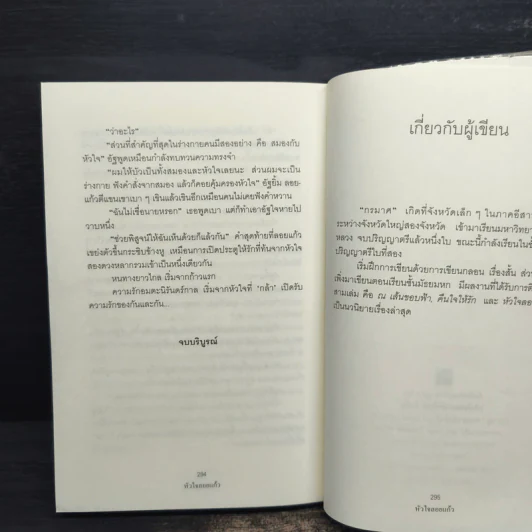 “ว่าอะไร”
“ส่วนที่สำคัญที่สุดในร่างกายคนมีสองอย่าง คือ สมองกับ
หัวใจ” อัฐพูดเหมือนกำลังทบทวนความทรงจำ
“ผมให้บัวเป็นทั้งสมองและหัวใจเลยนะ ส่วนผมจะเป็น
ร่างกาย ฟังคำสั่งจากสมอง แล้วก็คอยคุ้มครองหัวใจ” อัฐยิ้ม ลอย-
แก้วตีแขนเขาเบา ๆ เขินแล้วเขินอีกเหมือนคนไม่เคยฟังคำหวาน
“ฉันไม่เชื่อนายหรอก” เธอพูดเบา แต่ก็ทำเอาอัฐใจหายไป
วาบหนึ่ง
“ช่วยพิสูจน์ให้ฉันเห็นด้วยก็แล้วกัน” คำสุดท้ายที่ลอยแก้ว
เขย่งตัวขึ้นกระซิบข้างหู เหมือนการเปิดประตูให้รักที่ท้นจากหัวใจ
สองดวงหลากรวมเข้าเป็นหนึ่งเดียวกัน
หนทางยาวไกล เริ่มจากก้าวแรก
ความรักอมตะนิรันดร์กาล เริ่มจากหัวใจที่ ‘กล้า’ เปิดรับ
ความรักของกันและกัน
จบบริบูรณ์
294
หัวใจลอยแก้ว
เกี่ยวกับผู้เขียน
“กรมาศ” เกิดที่จังหวัดเล็ก ๆ ในภาคอีสาน
ระหว่างจังหวัดใหญ่สองจังหวัด เข้ามาเรียนมหาวิทยา
หลวง จบปริญญาตรีแล้วหนึ่งใบ ขณะนี้กำลังเรียนใน
ปริญญาตรีใบที่สอง
เริ่มฝึกการเขียนด้วยการเขียนกลอน เรื่องสั้น ส่วน
เพิ่งมาเขียนตอนเรียนชั้นมัธยมหก มีผลงานที่ได้รับการ
สามเล่ม คือ ณ เส้นขอบฟ้า, คืนใจให้รัก และ หัวใจลอย
เป็นนวนิยายเรื่องล่าสุด
295
หัวใจลอยแก้ว